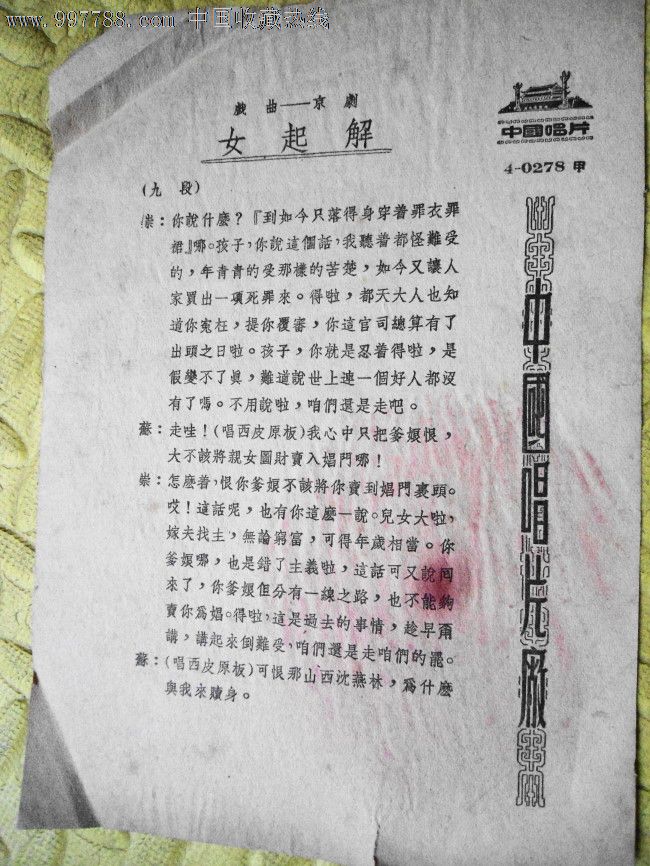 www.997788.com 中国收藏热线
戲曲——京劇
女起解
中國唱片
4-0278 甲
(九 段)
崇：你說什麽？『到如今只落得身穿着罪衣罪
裙』哪。孩子，你說這個話，我聽着都怪難受
的，年青青的受那樣的苦楚，如今又讓人
家買出一項死罪來。得啦，都天大人也知
道你寃枉，提你覆審，你這官司總算有了
出頭之日啦。孩子，你就是忍着得啦，是
假變不了眞，難道說世上連一個好人都沒
有了嗎。不用說啦，咱們還是走吧。
蘇：走哇！(唱西皮原板)我心中只把爹娘恨，
大不該將親女圖財賣入娼門哪！
崇：怎麽着，恨你爹娘不該將你賣到娼門裏頭。
哎！這話呢，也有你這麽一說。兒女大啦，
嫁夫找主，無論窮富，可得年歲相當。你
爹娘哪，也是錯了主義啦，這話可又說回
來了，你爹娘但分有一線之路，也不能夠
賣你爲娼。得啦，這是過去的事情，趁早甭
講，講起來倒難受，咱們還是走咱們的罷。
蘇：(唱西皮原板)可恨那山西沈燕林，爲什麽
與我來贖身。
中國唱片廠